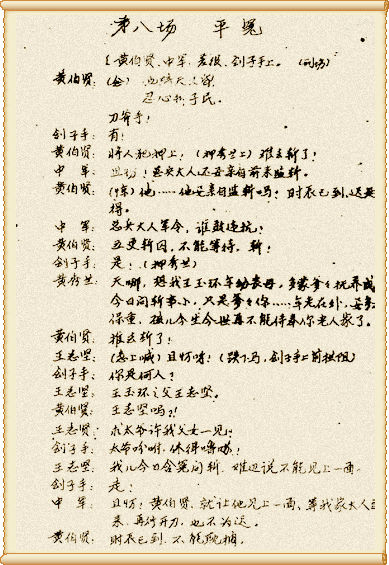 第八场 平冤
〔黄伯贤、中军、差役、刽子手上。(刑场)
黄伯贤:(念)
忍心扑子民。
刀斧手!
刽子手:有!
黄伯贤:将人犯押上!(押秀兰上)推去斩了!
中 军:且功!总兵大人还要亲自前来监斩。
黄伯贤:(惊)他……他要亲自监斩吗?时辰已到,迟延
得。
中 军:总兵大人军令,谁敢违抗?
黄伯贤:立更斩囚,不能等待,斩!
刽子手:是!(押秀兰)
黄秀兰:天哪,想我王玉环年幼丧母,多蒙爹爹抚养成
今日问斩事小,只是爹爹你……年老在外,
保重,孩儿今生今世再不能侍奉你老人家了。
黄伯贤:推去斩了!
王志坚:(急上喊)且切呀!(跌下马,刽子手上前拦阻)
刽子手:你是何人?
王志坚:王玉环之父王志坚。
黄伯贤:王志坚吗?!
王志坚:求太爷许我父女一见。
刽子手:太爷吩咐,休得噜嗦!
王志坚:我儿今日含冤问斩,难道说不能见上一面。
刽子手:走!
中 军:且切!黄伯贤,就让他见上一面,等我家大人
来,再行开刀,也不为迟。
黄伯贤:时辰已到,不能耽搁。